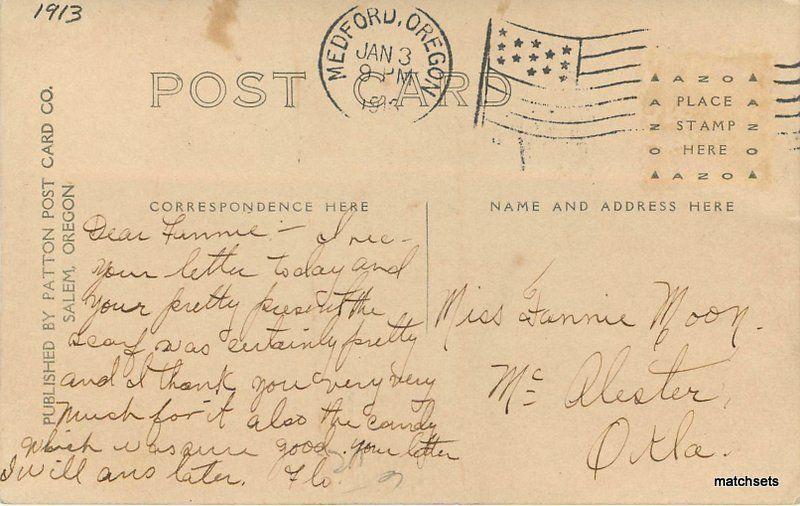 1913
MEDFORD, OREGON
JAN 3
8 PM
191
POST CARD
AZO
PLACE
STAMP
HERE
AZO
PUBLISHED BY PATTON POST CARD CO.
SALEM, OREGON
CORRESPONDENCE HERE
NAME AND ADDRESS HERE
Dear Fannie:- I rec-
your letter today and
your pretty present the
scarf was certainly pretty
and I thank you very very
much for it also the candy
which was sure good. your letter
I will ans later. Flo
Miss Fannie Moon.
Mc Alester,
Okla.
matchsets